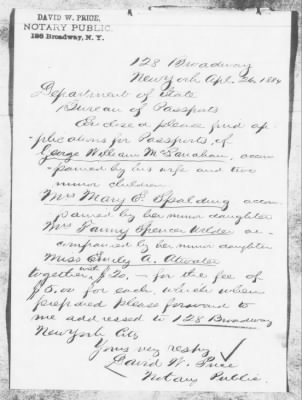 DAVID W. PRICE,
NOTARY PUBLIC.
128 Broadway, N. Y.
128 Broadway
New York Apl. 26, 1884
Department of State
Bureau of Passports
Enclosed please find ap-
-plications for Passports, of
George William McLanahan, accom
-panied by his wife and two
minor children
Mrs Mary E. Spalding accom
panied by her minor daughter
Mrs Fanny Spencer Wilder ac-
-companied by her minor daughter
Miss Emily A. Atwater
together with $20.— for the fee of
$5.00 for each, which when
prepared please forward to
me addressed to 128 Broadway
New York City
Yours very respy
David W. Price
Notary Public.